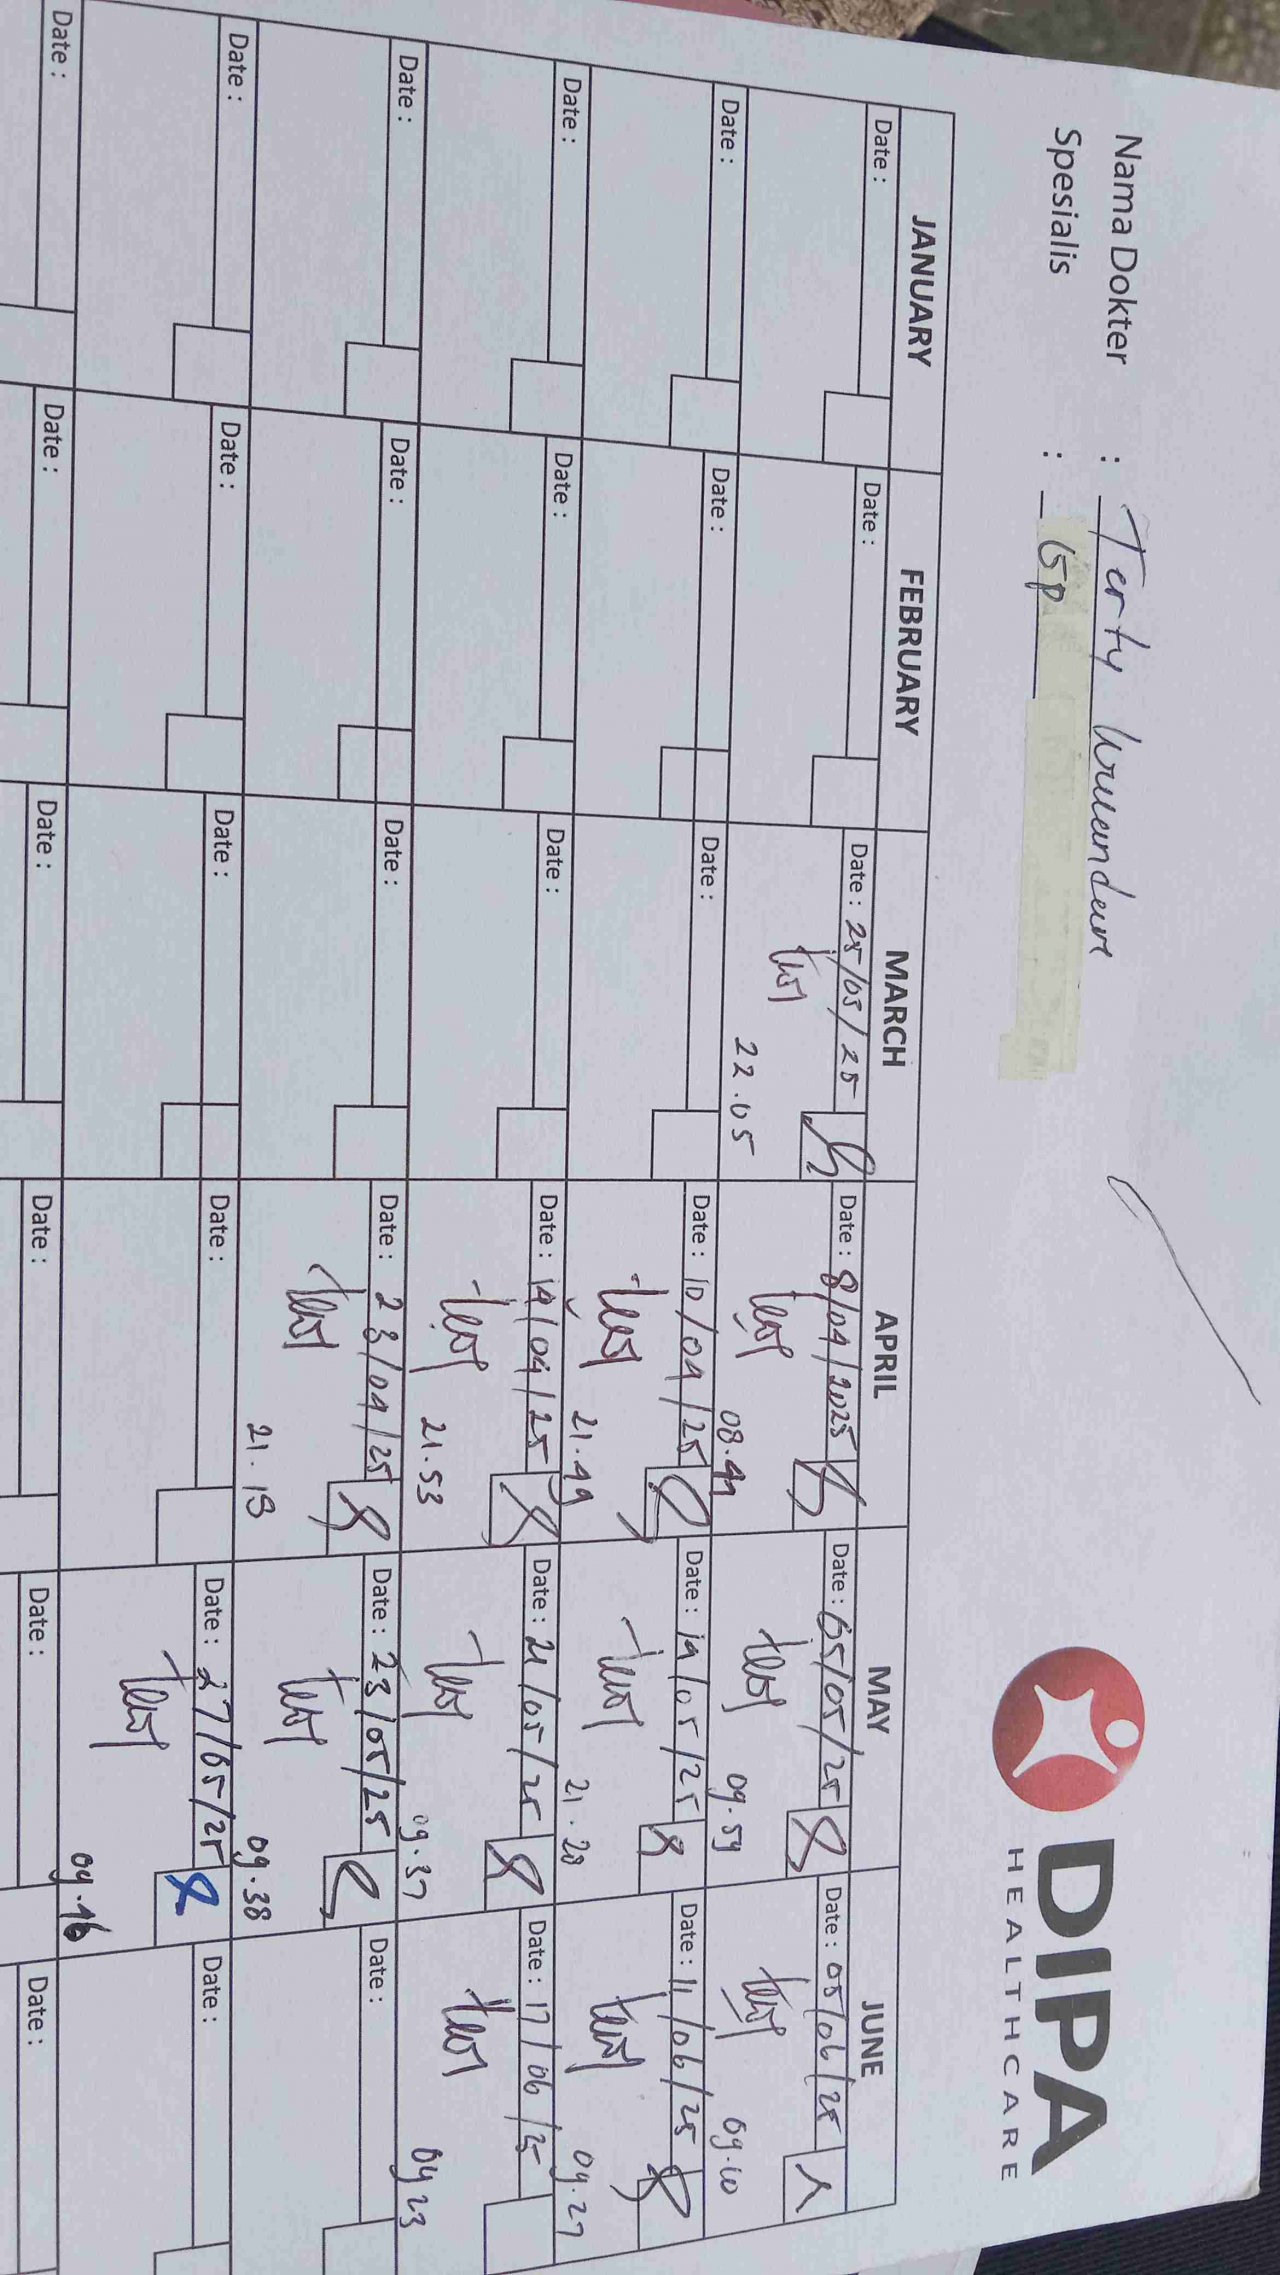 DIPA
HEALTHCARE
Nama Dokter : Terty
Spesialis : GP
JANUARY FEBRUARY MARCH APRIL MAY JUNE
Date : Date : Date : 25/03/25 Date : 8/04/2025 Date : 05/05/25 Date : 05/06/25
22.05 08.41 09.59 09.10
Date : Date : Date : Date : 10/04/25 Date : 19/05/25 Date : 11/06/25
21.49 21.28 09.27
Date : Date : Date : Date : 14/04/25 Date : 21/05/25 Date : 17/06/25
21.53 09.37 09 23
Date : Date : Date : Date : 23/04/25 Date : 23/05/25 Date :
21.19 09.38
Date : Date : Date : Date : Date : 27/05/25 Date :
09.16
Date : Date : Date : Date : Date : Date :